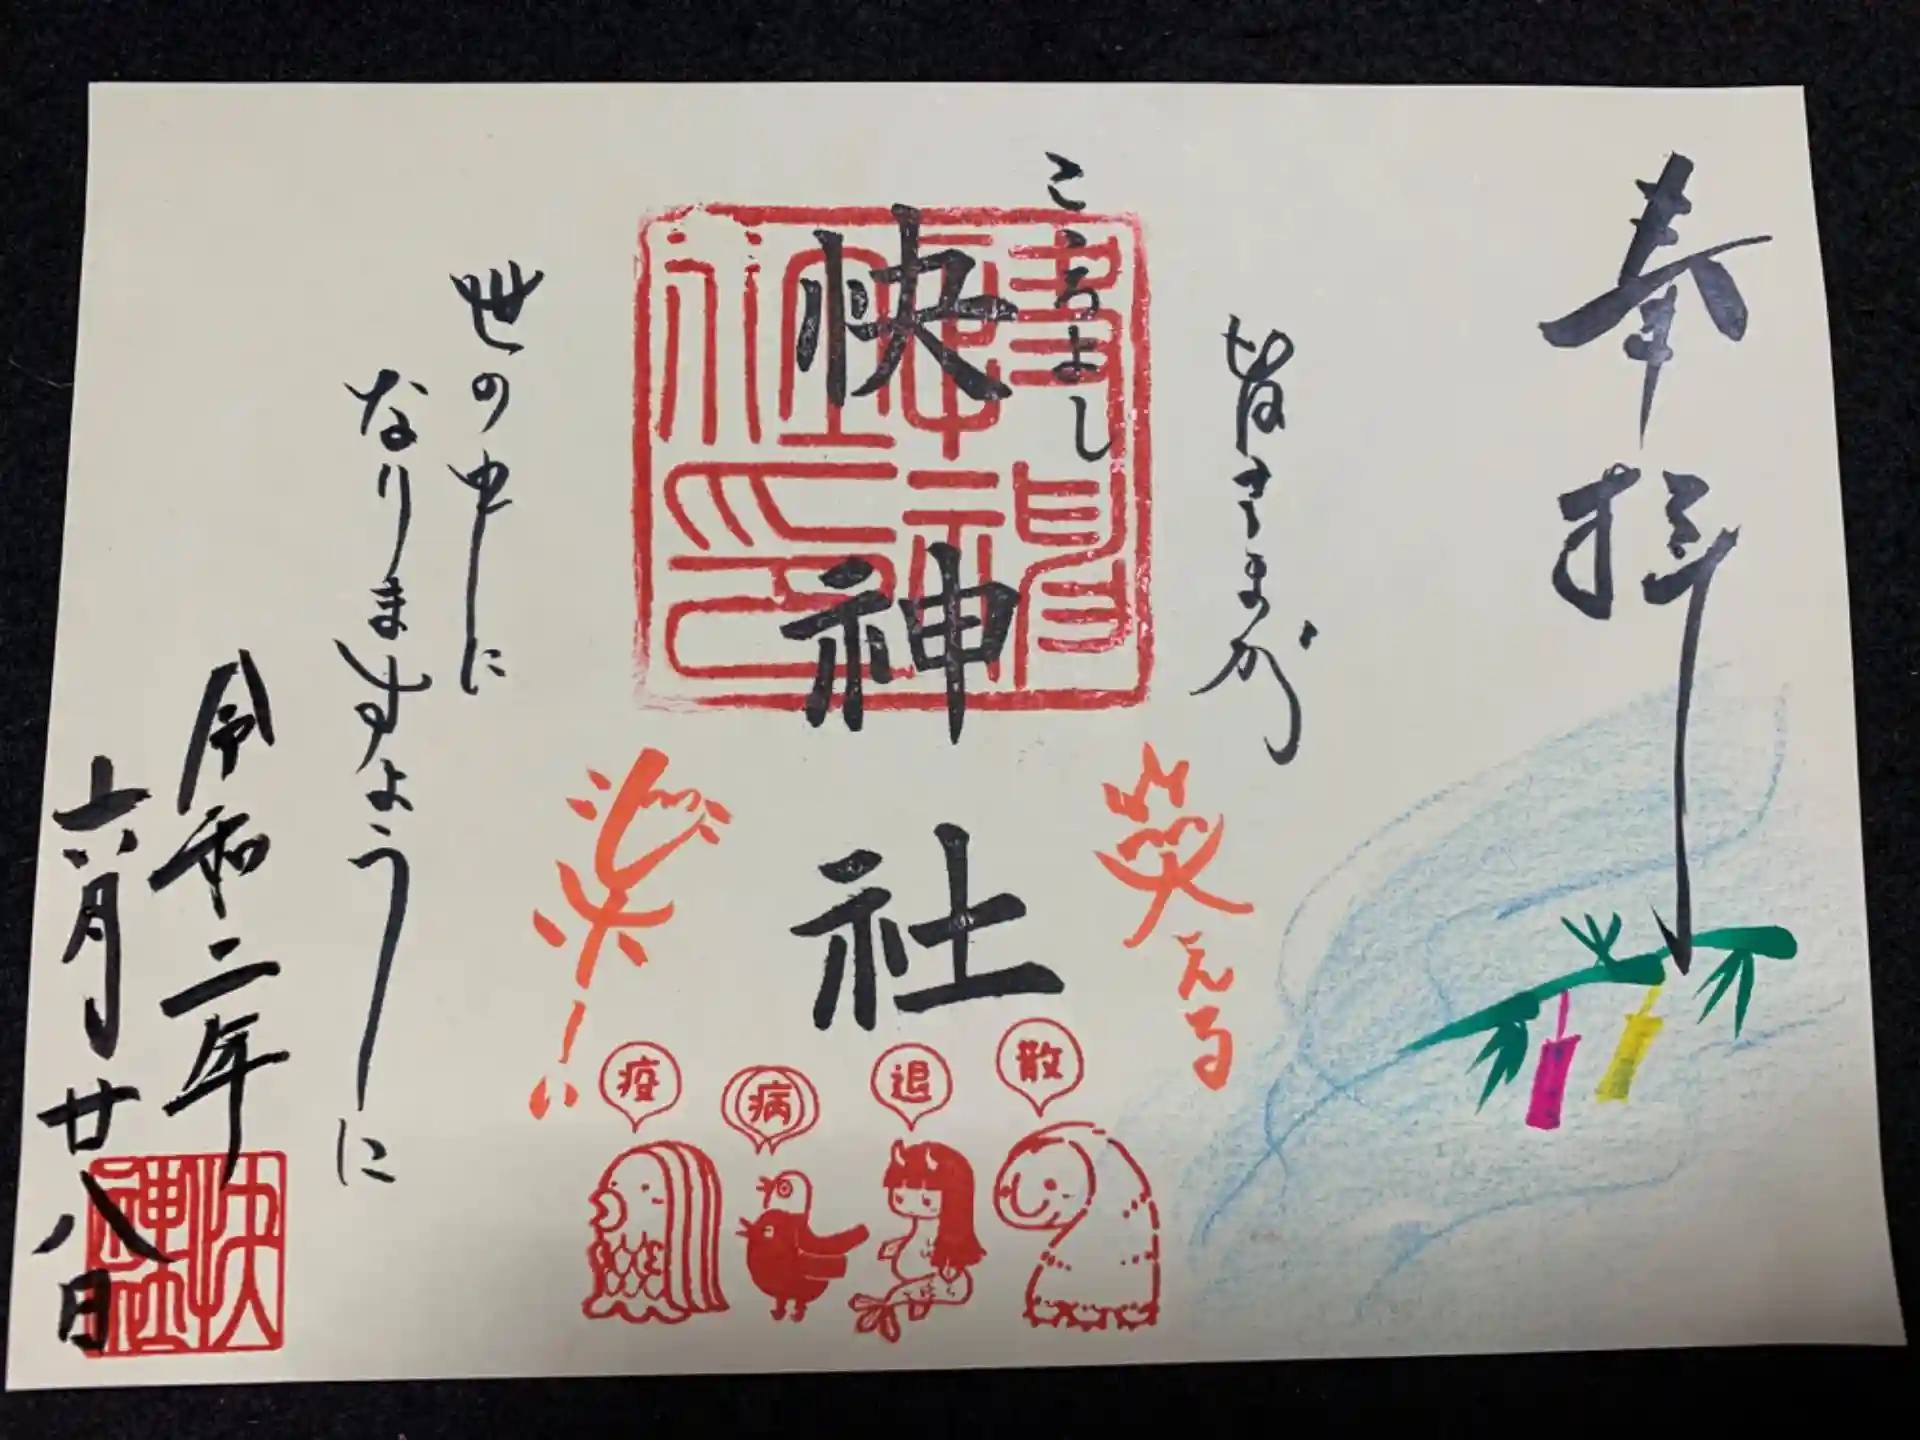 奉拝
皆さまが
笑える
こゝろよし
快神社
楽しい
世の中に
なりますように
令和二年
六月廿八日
疫
病
退
散
快神社